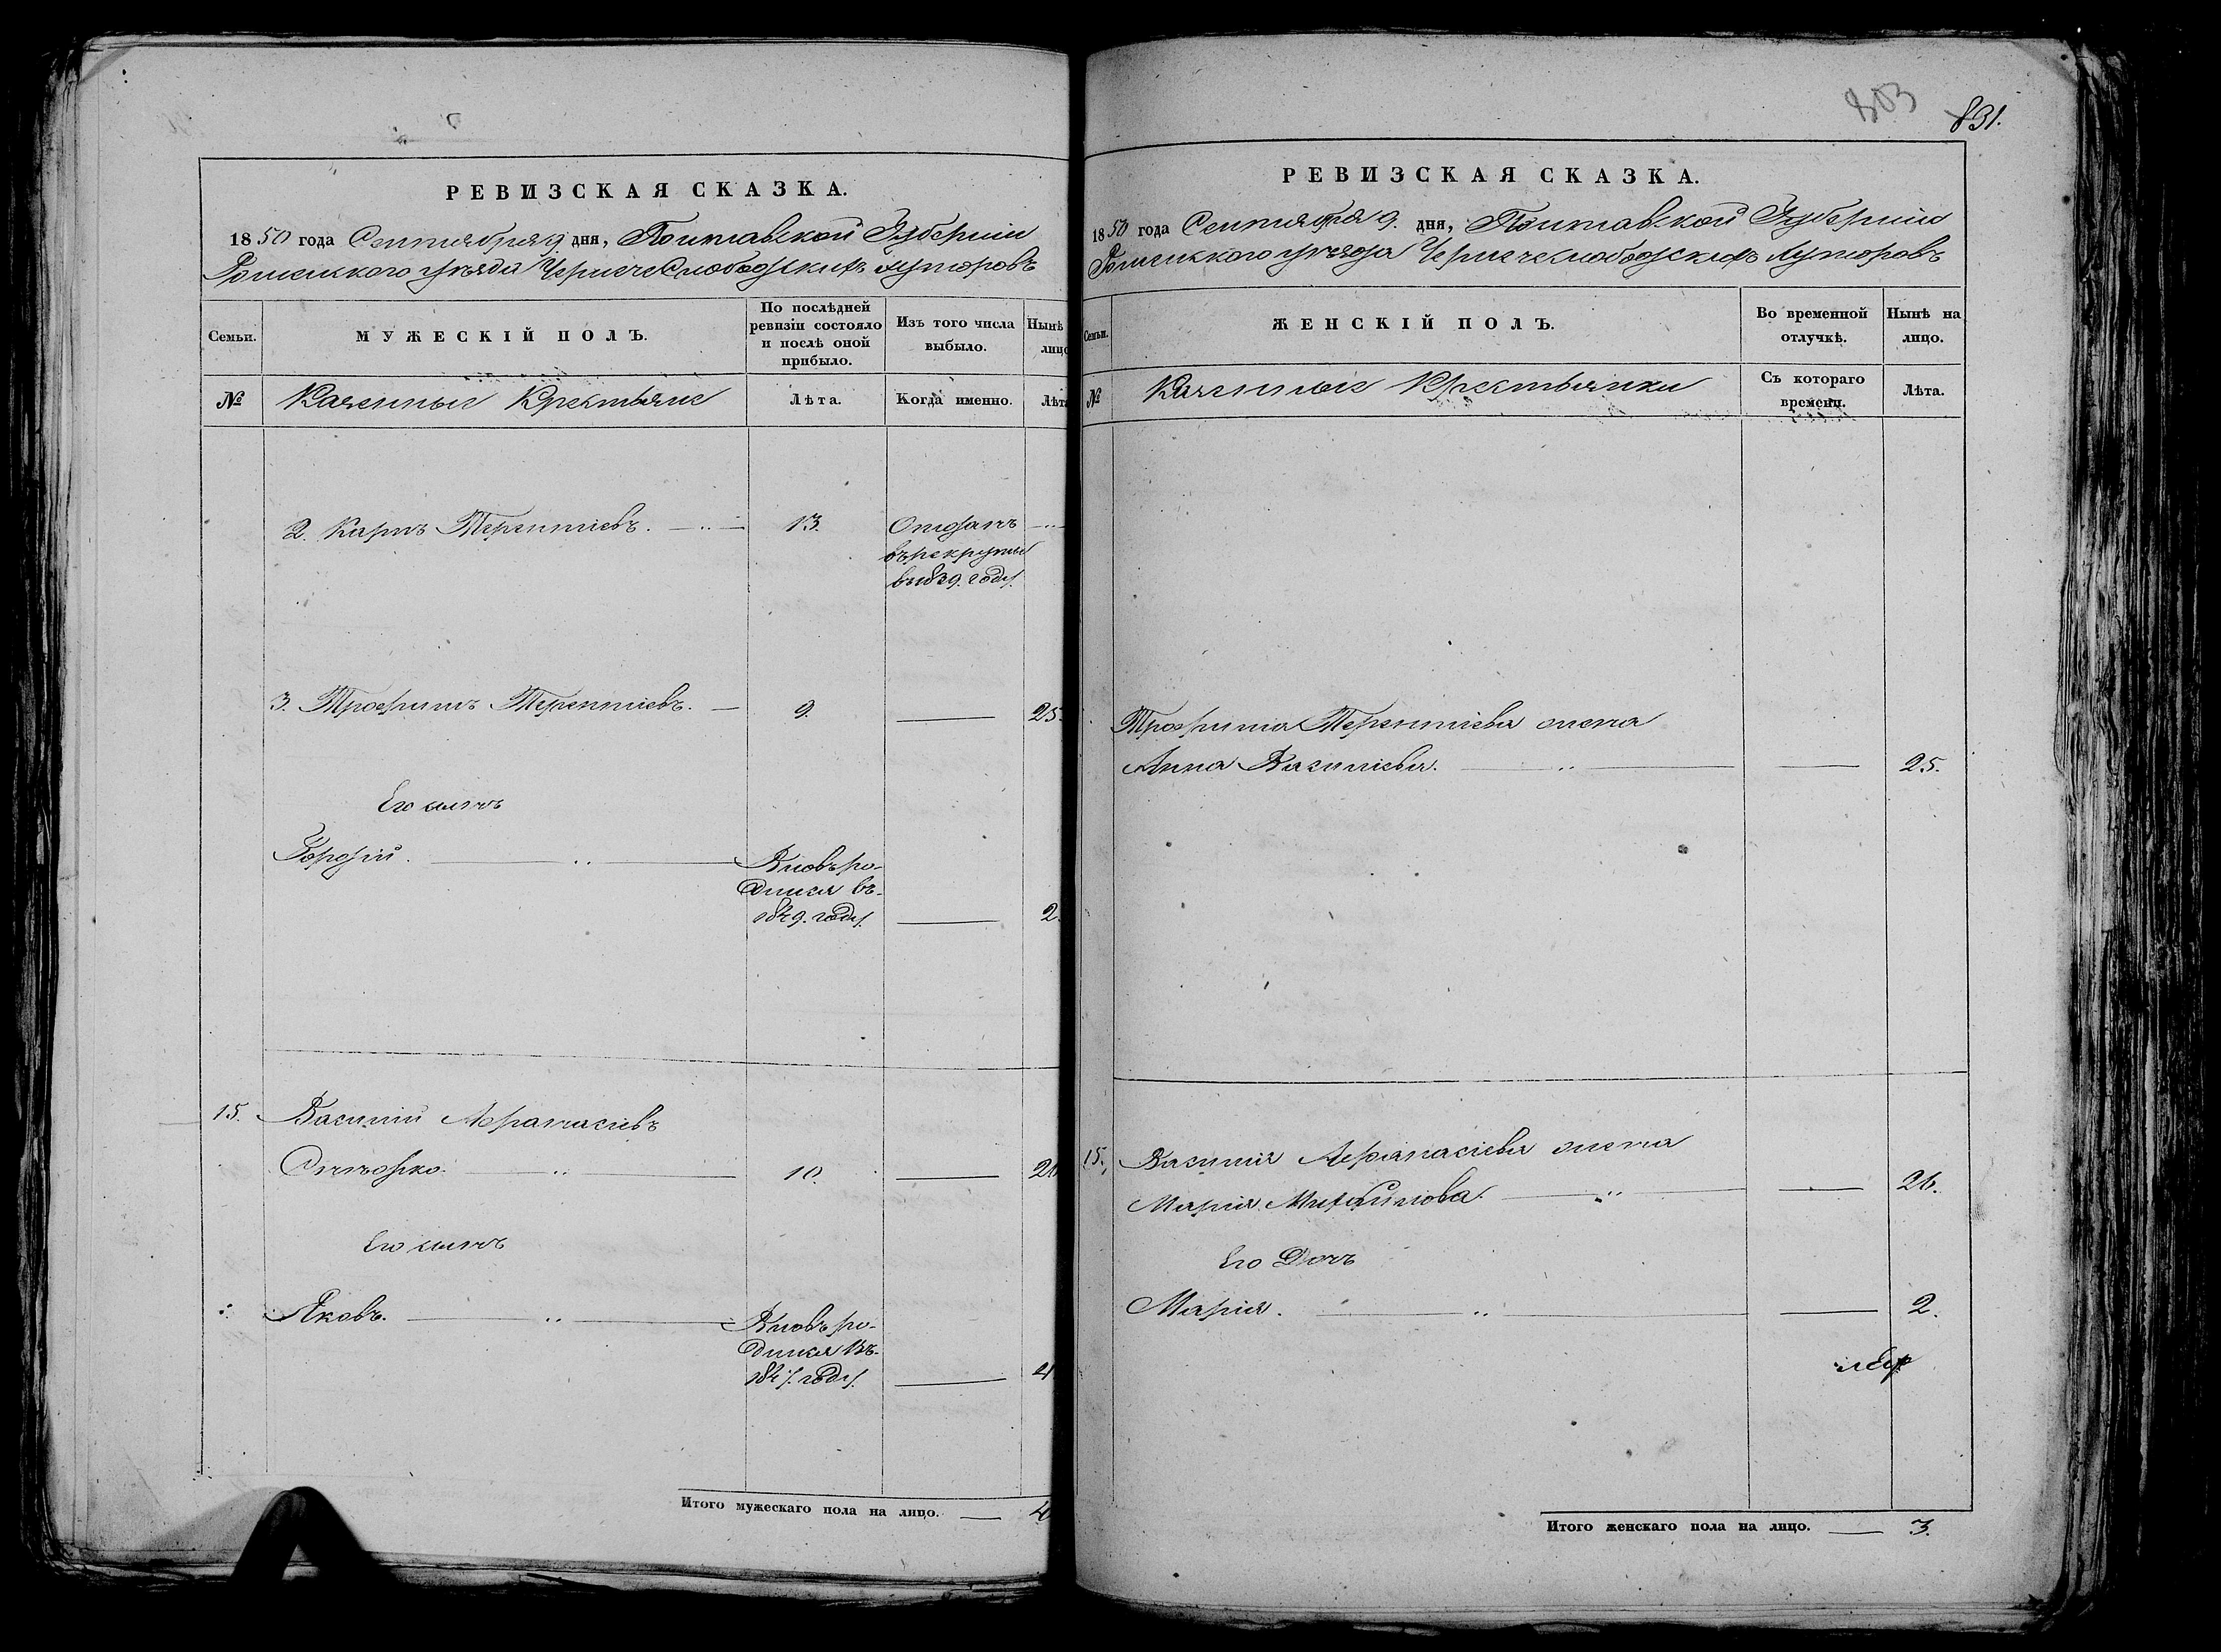 РЕВИЗСКАЯ СКАЗКА.
1850 года Сентября 9 дня, Полтавской Губернии
Роменского уѣзда ЧернечеСлободскихъ хуторовъ
Семьи.
МУЖЕСКІЙ ПОЛЪ.
По послѣдней ревизіи состояло и послѣ оной прибыло.
Изъ того числа выбыло.
Нынѣ
лицо
№
Казенные Крестьяне
Лѣта.
Когда именно.
Лѣта
2. Карпъ Терентіевъ.
13.
Отданъ
въ рекруты
въ 1839. году.
3. Трофимъ Терентіевъ.
9.
25.
Его сынъ
Гордій.
Вновь ро-
дился въ
1849. году.
2.
15.
Василій Афанасіевъ
10.
Его сынъ
Яковъ.
Вновь ро-
дился въ
1847. году.
4
Итого мужескаго пола на лицо.
4
803
831.
РЕВИЗСКАЯ СКАЗКА.
1850 года Сентября 9. дня, Полтавской Губерніи
Роменского уѣзда Чернечеслободскихъ Хуторовъ
Семьи.
ЖЕНСКІЙ ПОЛЪ.
Во временной отлучкѣ.
Нынѣ на лицо.
№
Казенные Крестьянки
Съ котораго времени.
Лѣта.
Трофима Терентіева жена
Анна Василіева.
25.
15.
Василія Афанасіева жена
Марія Михайлова.
26.
Его Дочь
Марія.
2.
Итого женскаго пола на лицо.
3.